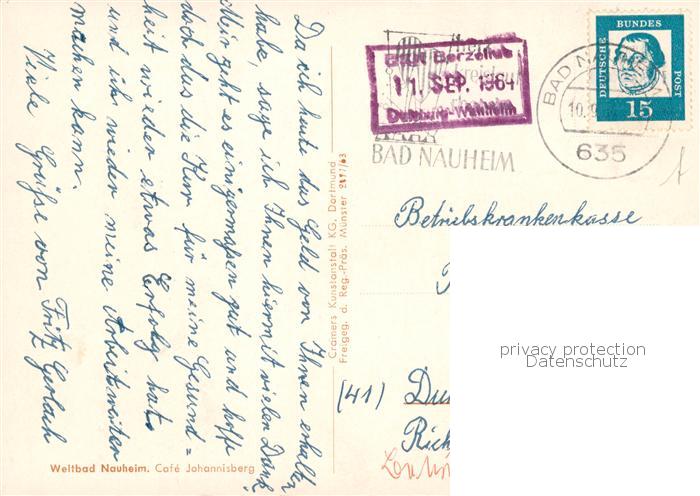 Da ich heute das Geld von Ihnen erhalten
habe, sage ich Ihnen hiermit vielen Dank.
Mir geht es einigermaßen gut und hoffe
doch das die Kur für meine Gesund=
heit wieder etwas Erfolg hat
und ich wieder meine Arbeit weiter
machen kann.
Viele Grüße von Fritz Gerlach
Weltbad Nauheim. Café Johannisberg
Cramers Kunstanstalt KG. Dortmund
Freigeg. d. Reg.-Präs. Münster 2177/63
11. SEP. 1964
BAD NAUHEIM
BAD N
10.
635
DEUTSCHE
BUNDES
POST
15
Betriebskrankenkasse
(41) Du
Rich
privacy protection
Datenschutz